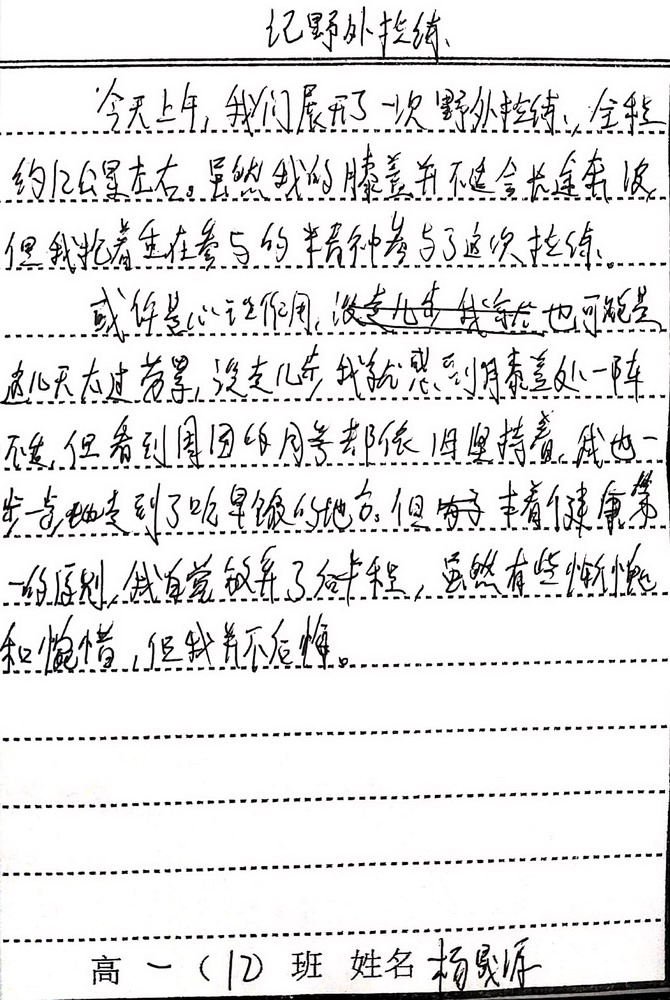 记野外拉练
今天上午，我们展开了一次野外拉练，全程
约12公里左右。虽然我的膝盖并不适合长途奔波，
但我抱着重在参与的精神参与了这次拉练。
或许是心理作用，没走几步我就 也可能是
这几天太过劳累，没走几步，我就感到膝盖处一阵
不适，但看到周围的同学都依旧坚持着，我也一
步一步地走到了吃早饭的地方。但 本着健康第
一的原则，我自觉放弃了后半程，虽然有些惭愧
和惋惜，但我并不后悔。
高一（12）班 姓名 杨晟源